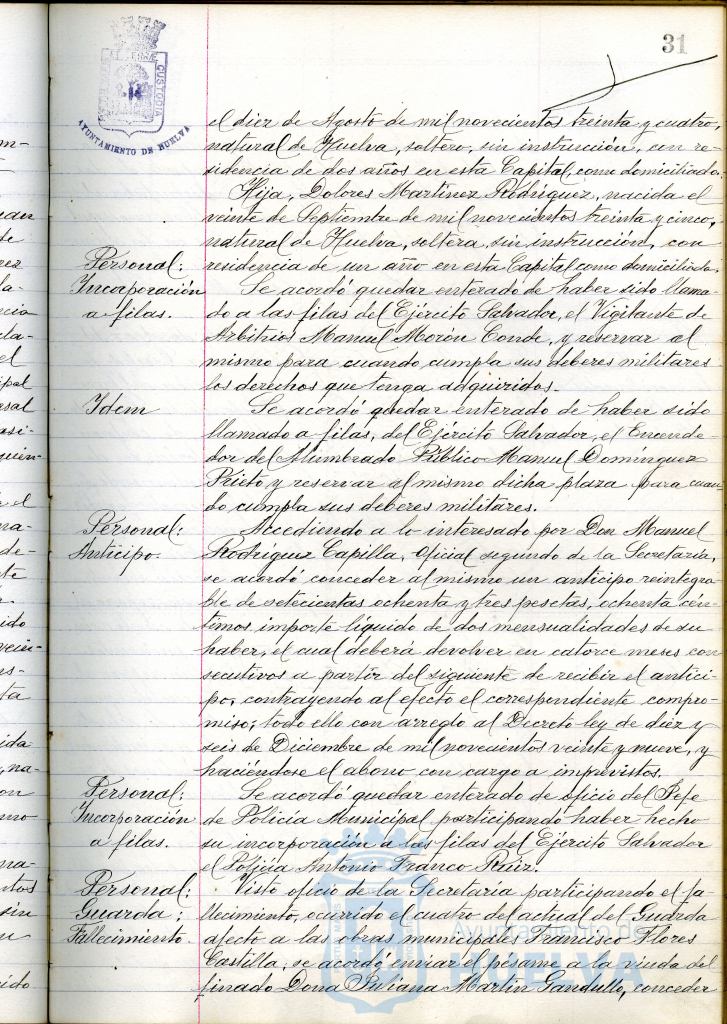 31
CUSTODIA
AYUNTAMIENTO DE HUELVA
el diez de Agosto de mil novecientos treinta y cuatro,
natural de Huelva, soltero, sin instrucción, con re-
sidencia de dos años en esta Capital, como domiciliado.
Hija, Dolores Martínez Rodríguez, nacida el
veinte de Septiembre de mil novecientos treinta y cinco,
natural de Huelva, soltera, sin instrucción, con
Personal: residencia de un año en esta Capital como domiciliada.
Incorporación Se acordó quedar enterado de haber sido llama-
a filas. do a las filas del Ejército Salvador, el Vigilante de
Arbitrios Manuel Morón Conde, y reservar al
mismo para cuando cumpla sus deberes militares
los derechos que tenga adquiridos.
Idem Se acordó quedar enterado de haber sido
llamado a filas, del Ejército Salvador, el Encende-
dor del Alumbrado Público Manuel Domínguez
Prieto y reservar al mismo dicha plaza para cuan
do cumpla sus deberes militares.
Personal: Accediendo a lo interesado por Don Manuel
Anticipo. Rodríguez Capilla, Oficial segundo de la Secretaría,
se acordó conceder al mismo un anticipo reintegra-
ble de setecientas ochenta y tres pesetas, ochenta cén-
timos, importe líquido de dos mensualidades de su
haber, el cual deberá devolver en catorce meses con
secutivos a partir del siguiente de recibir el antici-
po, contrayendo al efecto el correspondiente compro-
miso; todo ello con arreglo al Decreto-ley de diez y
seis de Diciembre de mil novecientos veinte y nueve, y
haciéndose el abono con cargo a imprevistos.
Personal: Se acordó quedar enterado de oficio del Jefe
Incorporación de Policía Municipal, participando haber hecho
a filas. su incorporación a las filas del Ejército Salvador
el Policía Antonio Franco Ruiz.
Personal: Visto oficio de la Secretaría participando el fa-
Guarda; llecimiento, ocurrido el cuatro del actual del Guarda
Fallecimiento. afecto a las obras municipales Francisco Flores
Castilla, se acordó enviar el pésame a la viuda del
finado Doña Juliana Martín Gandullo, conceder
Ayuntamiento de
HUELVA